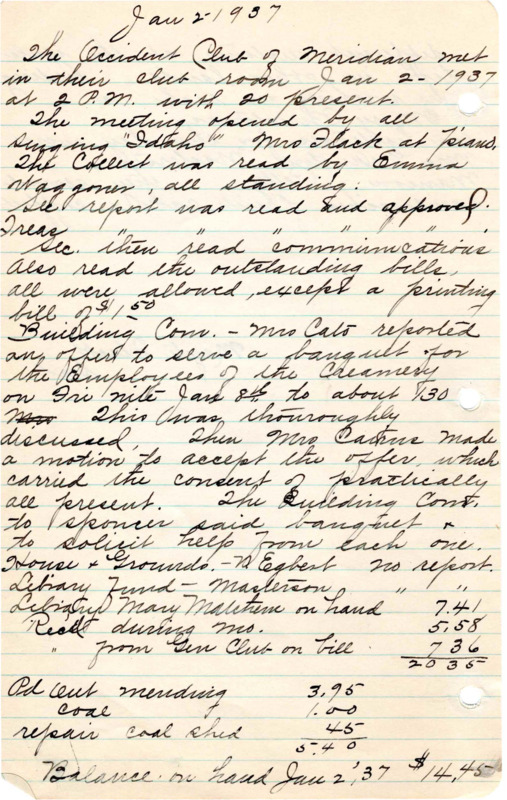 Jan 2-1937
The Occident Club of Meridian met
in their club room Jan 2 - 1937
at 2 P.M. with 20 present.
The meeting opened by all
singing "Idaho" Mrs Flack at piano.
The Collect was read by Emma
Waggoner, all standing.
Sec. report was read and approved.
Treas " " " " "
Sec. then read communications
Also read the outstanding bills,
all were allowed, except a printing
bill of $1.50
Building Com. - Mrs Cato reported
an offer to serve a banquet for
the Employees of the Creamery
on Fri nite Jan 8th to about 130
This was thouroughly
discussed, Then Mrs Cairns made
a motion to accept the offer, which
carried the consent of practically
all present. The Building Com.
to sponcer said banquet &
to solicit help from each one.
House & Grounds. - Egbert no report.
Library Fund - Masterson " "
Library Mary on hand 7.41
Recd during mo. 5.58
" from Gen Club on bill 7 36
20 35
Pd Out mending 3.95
coal 1.00
repair coal shed 45
5.40
Balance on hand Jan 2, '37 $14.45